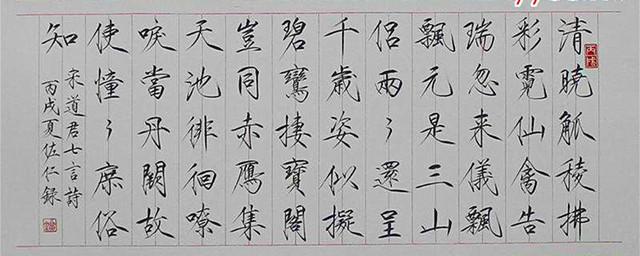 清曉觚稜拂
彩霓仙禽告
瑞忽来儀飄
飄元是三山
侣兩〻還呈
千歲姿似擬
碧鸞棲寶閣
豈同赤鴈集
天池徘徊嘹
唳當丹闕故
使憧〻庶俗
知
宋道君七言詩
丙戌夏佐仁録